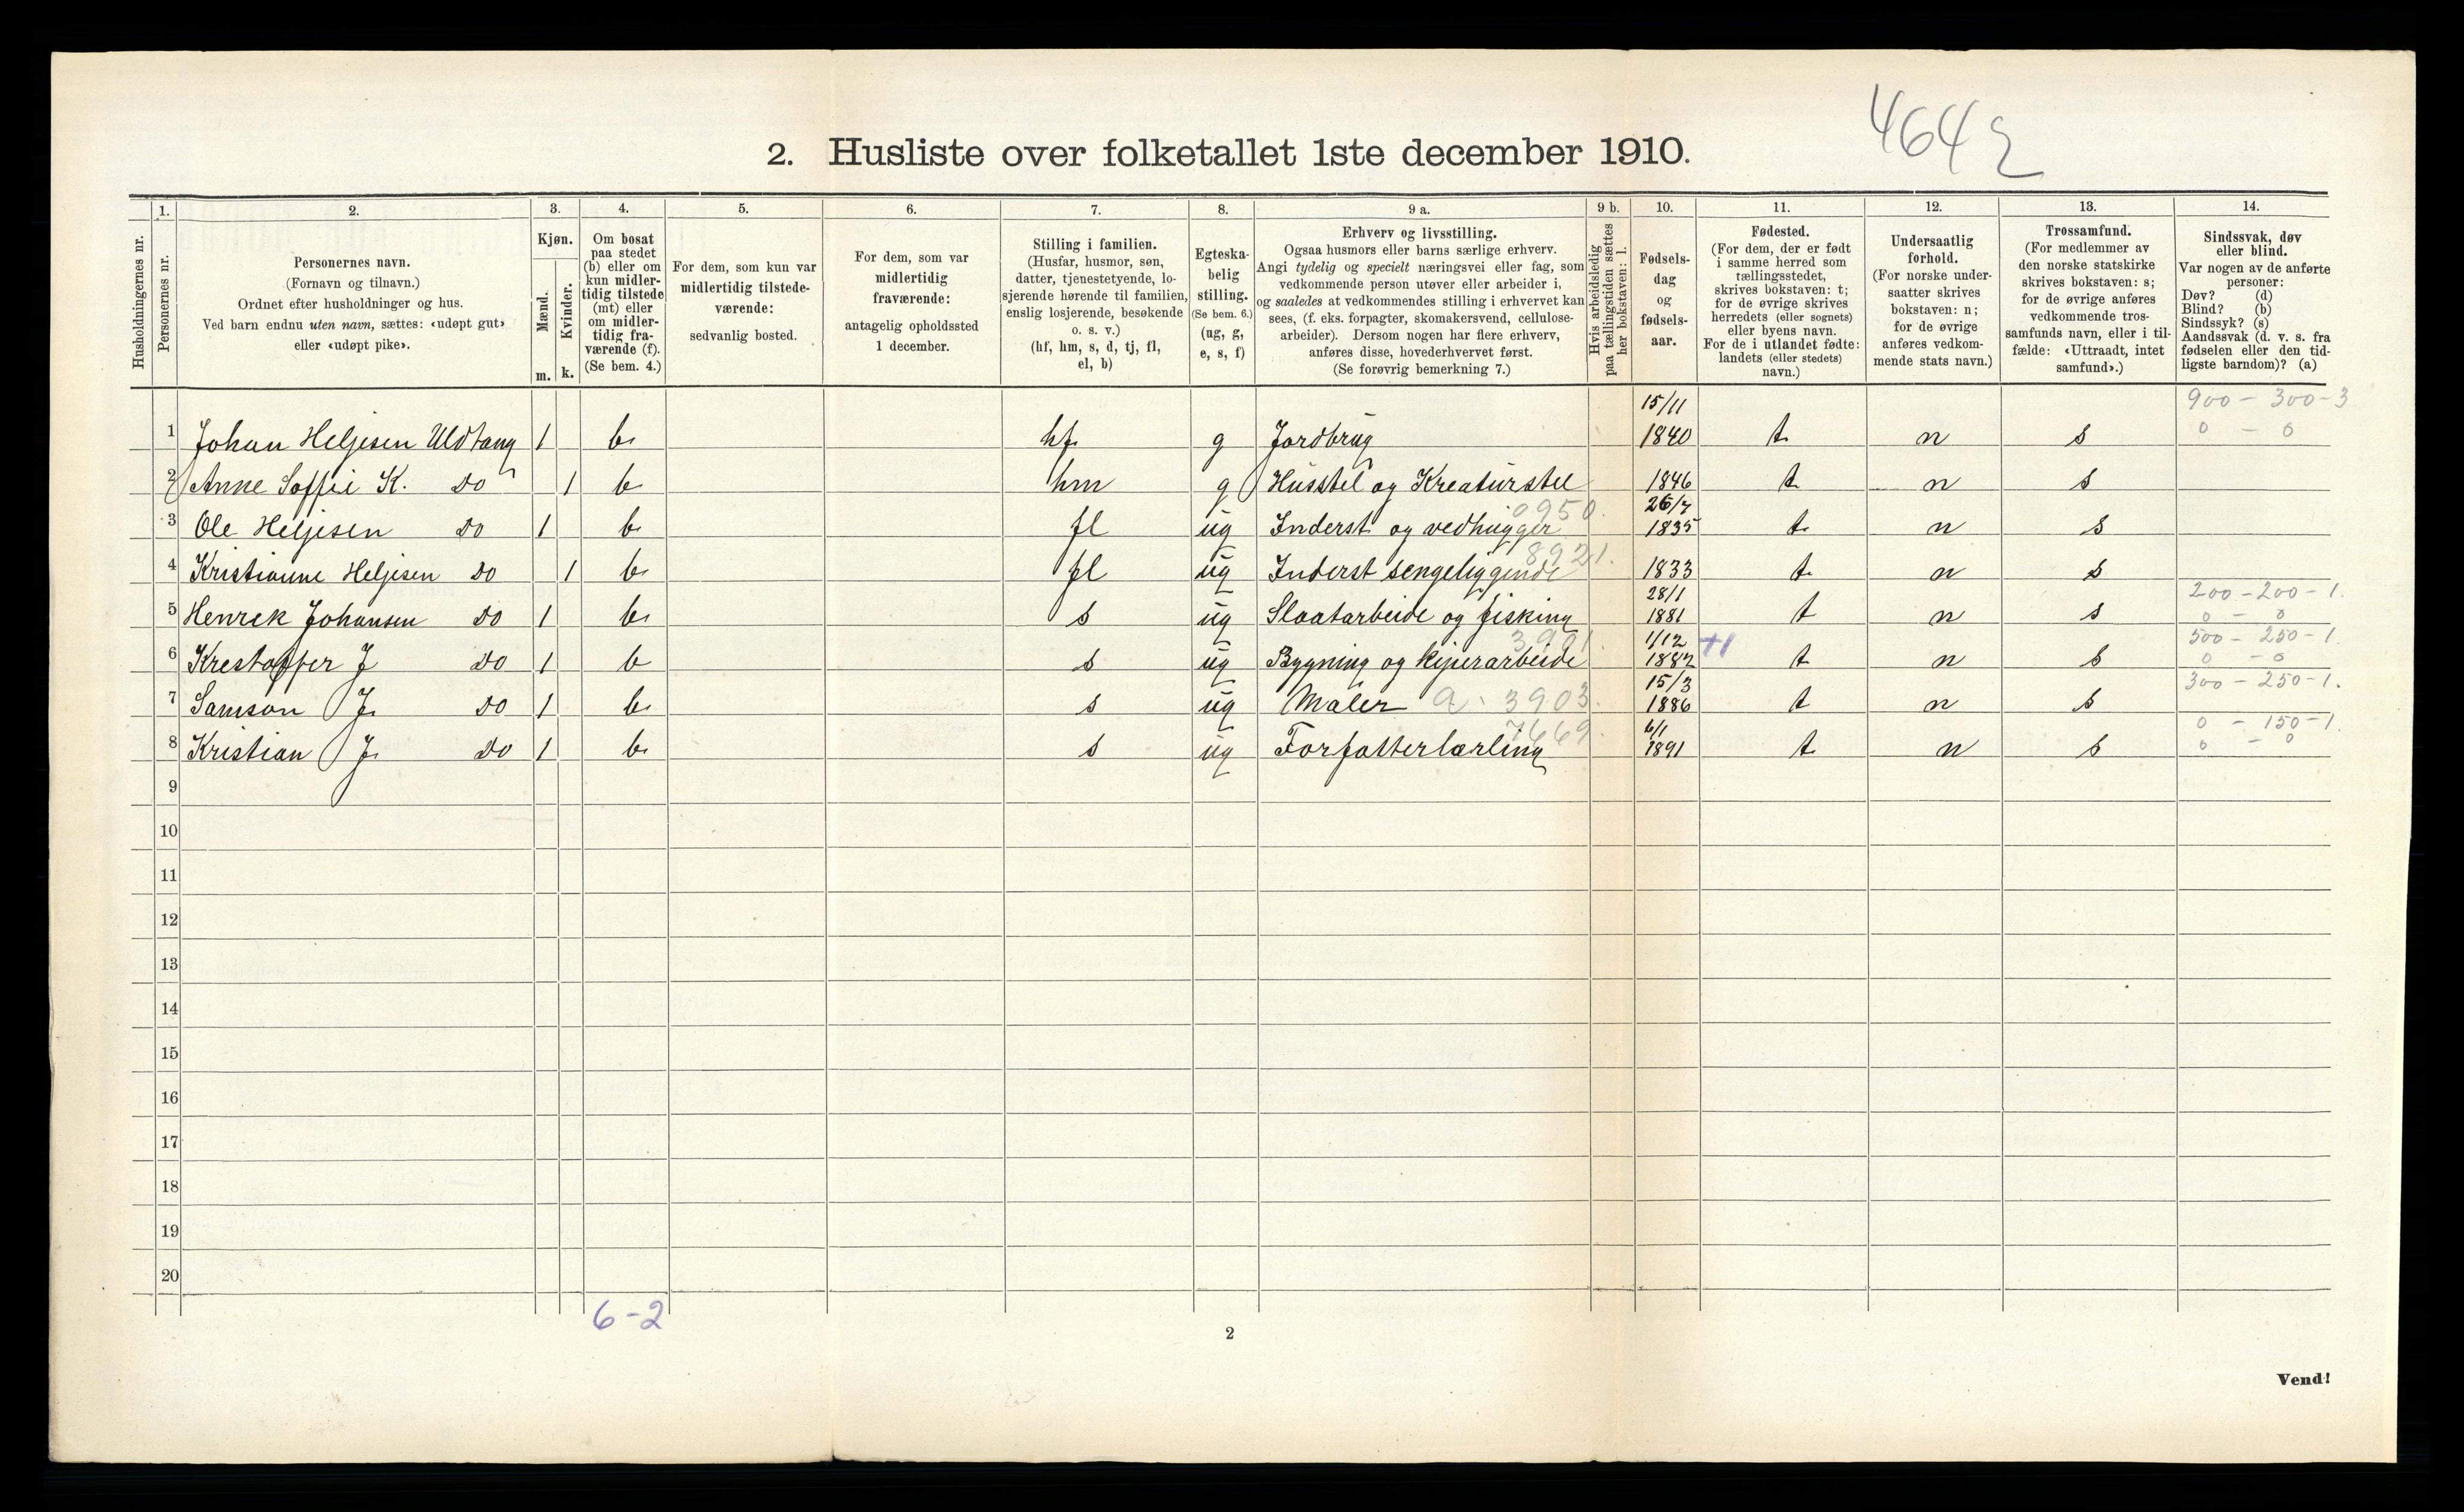 4642
2. Husliste over folketallet 1ste december 1910.
Husholdningernes nr.
1. 2. 3. 4. 5. 6. 7. 8. 9 a. 9 b. 10. 11. 12. 13. 14.
Personernes nr.
Personernes navn.
(Fornavn og tilnavn.)
Ordnet efter husholdninger og hus.
Ved barn endnu uten navn, sættes: «udøpt gut»
eller «udøpt pike».
Kjøn.
Mænd.
Kvinder.
m. k.
Om bosat
paa stedet
(b) eller om
kun midler-
tidig tilstede
(mt) eller
om midler-
tidig fra-
værende (f).
(Se bem. 4.)
For dem, som kun var
midlertidig tilstede-
værende:
sedvanlig bosted.
For dem, som var
midlertidig
fraværende:
antagelig opholdssted
1 december.
Stilling i familien.
(Husfar, husmor, søn,
datter, tjenestetyende, lo-
sjerende hørende til familien,
enslig losjerende, besøkende
o. s. v.)
(hf, hm, s, d, tj, fl,
el, b)
Egteska-
belig
stilling.
(Se bem. 6.)
(ug, g,
e, s, f)
Erhverv og livsstilling.
Ogsaa husmors eller barns særlige erhverv.
Angi tydelig og specielt næringsvei eller fag, som
vedkommende person utøver eller arbeider i,
og saaledes at vedkommendes stilling i erhvervet kan
sees, (f. eks. forpagter, skomakersvend, cellulose-
arbeider). Dersom nogen har flere erhverv,
anføres disse, hovederhvervet først.
(Se forøvrig bemerkning 7.)
Hvis arbeidsledig
paa tællingstiden sættes
her bokstaven: l.
Fødsels-
dag
og
fødsels-
aar.
Fødested.
(For dem, der er født
i samme herred som
tællingsstedet,
skrives bokstaven: t;
for de øvrige skrives
herredets (eller sognets)
eller byens navn.
For de i utlandet fødte:
landets (eller stedets)
navn.)
Undersaatlig
forhold.
(For norske under-
saatter skrives
bokstaven: n;
for de øvrige
anføres vedkom-
mende stats navn.)
Trossamfund.
(For medlemmer av
den norske statskirke
skrives bokstaven: s;
for de øvrige anføres
vedkommende tros-
samfunds navn, eller i til-
fælde: «Uttraadt, intet
samfund».)
Sindssvak, døv
eller blind.
Var nogen av de anførte
personer:
Døv? (d)
Blind? (b)
Sindssyk? (s)
Aandssvak (d. v. s. fra
fødselen eller den tid-
ligste barndom)? (a)
15/11 900 - 300 - 3
1 Johan Heljesen Uldtang 1 b. hf. g Jordbrug 1840 t. n s 0 - 0
2 Anne Soffie K. Do 1 b hm g Husstel og Kreaturstel 1846 t. n s
0950. 26/7
3 Ole Heljesen Do 1 b. fl ug Inderst og vedhugger 1835 t. n s
8921.
4 Kristianne Heljesen Do 1 b. fl ug Inderst sengeliggende 1833 t. n s
28/1 200 - 200 - 1.
5 Henrek Johansen Do 1 b. s ug Slaatarbeide og fisking 1881 t n s 0 - 0
3901. 1/12 +1 500 - 250 - 1.
6 Krestoffer J Do 1 b s ug Bygning og kiperarbeide 1882 t n s 0 - 0
15/3 300 - 250 - 1.
7 Samson J. Do 1 b. s ug Maler a. 3903. 1886 t n s
7669. 6/1 0 - 150 - 1.
8 Kristian J. Do 1 b. s ug Forfatterlærling 1891 t. n s 0 - 0
9
10
11
12
13
14
15
16
17
18
19
20
6 - 2
2
Vend!